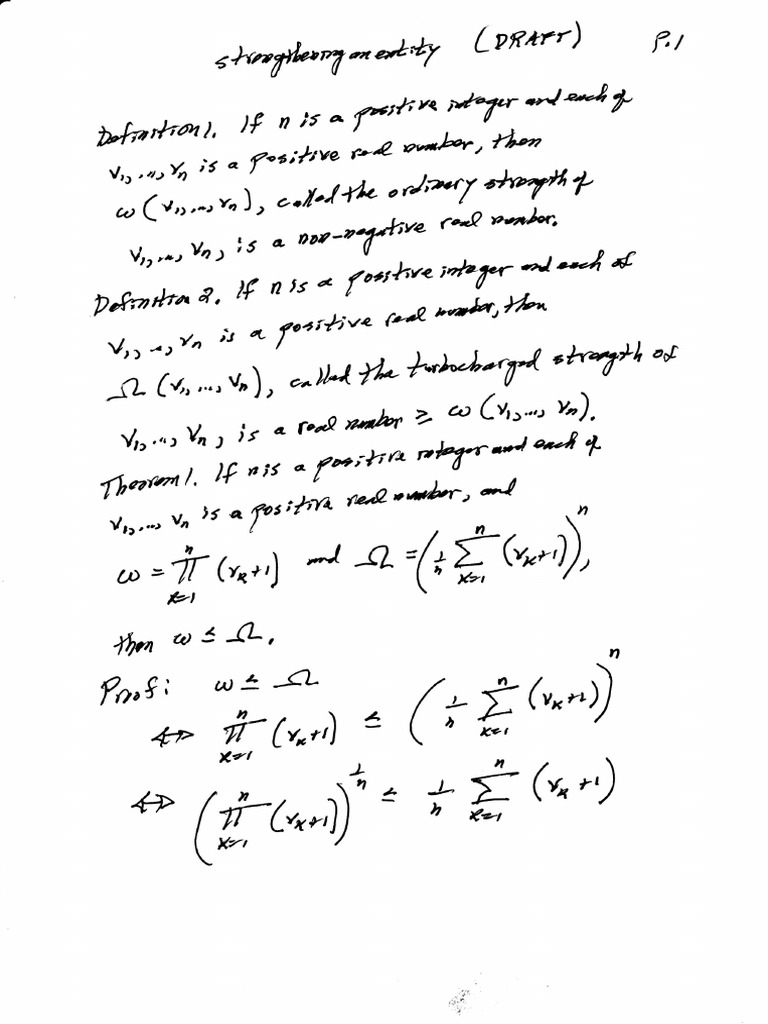 strengthening an entity (DRAFT) P.1
Definition 1. If n is a positive integer and each of
v₁, ..., vₙ is a positive real number, then
ω (v₁, ..., vₙ), called the ordinary strength of
v₁, ..., vₙ, is a non-negative real number.
Definition 2. If n is a positive integer and each of
v₁, ..., vₙ is a positive real number, then
Ω (v₁, ..., vₙ), called the turbocharged strength of
v₁, ..., vₙ, is a real number ≥ ω (v₁, ..., vₙ).
Theorem 1. If n is a positive integer and each of
v₁, ..., vₙ is a positive real number, and
ω = ∏_{k=1}^{n} (v_k+1) and Ω = (1/n ∑_{k=1}^{n} (v_k+1))^n,
then ω ≤ Ω.
Proof: ω ≤ Ω
⇔ ∏_{k=1}^{n} (v_k+1) ≤ (1/n ∑_{k=1}^{n} (v_k+1))^n
⇔ (∏_{k=1}^{n} (v_k+1))^{1/n} ≤ 1/n ∑_{k=1}^{n} (v_k+1)